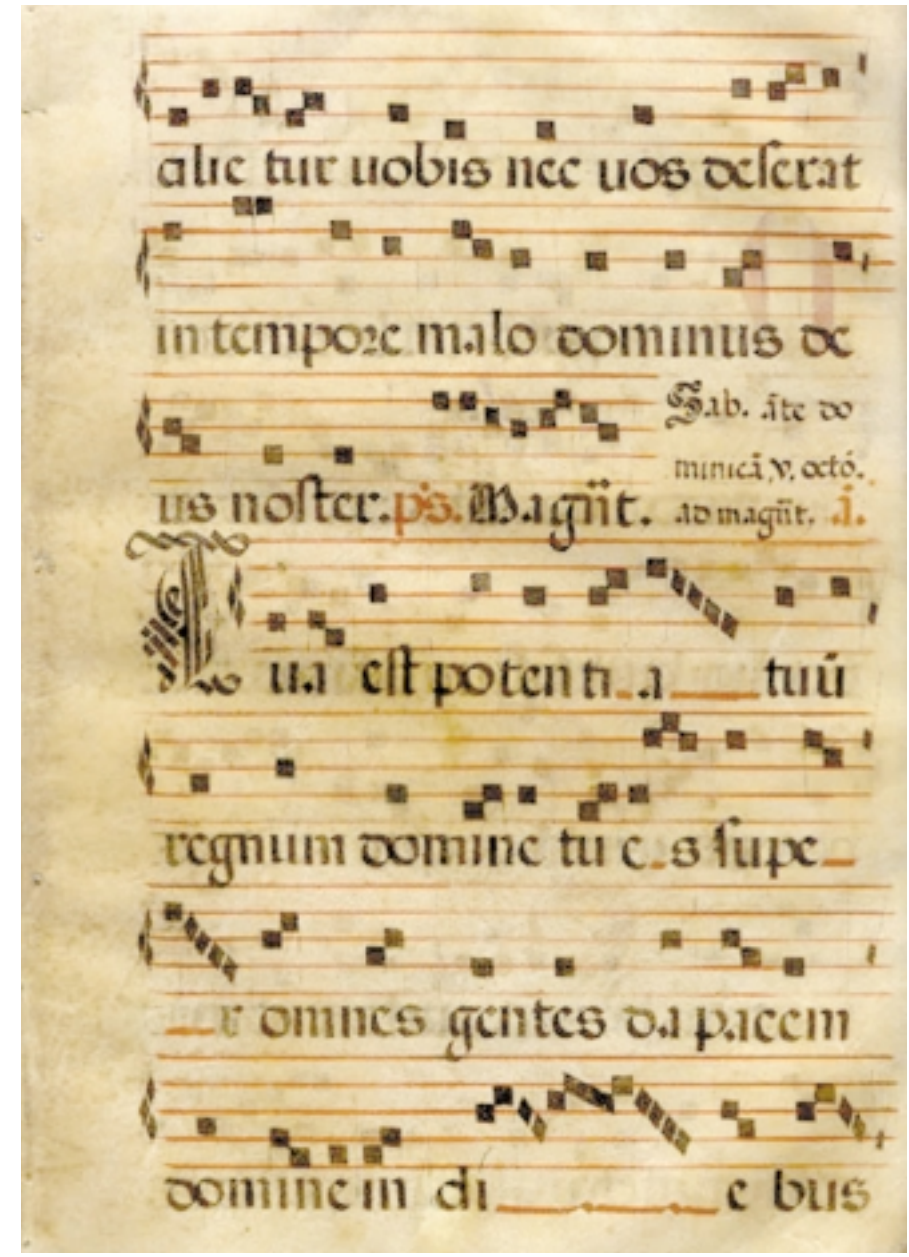 alie tur uobis nec uos deserat
in tempore malo dominus de
us noster. ps. Magñt. Sab. āte do
minicā, v, octó.
ad magñt. ā.
Tua est potenti_a___tuū
regnum domine tu e_s supe_
__r omnes gentes da pacem
domine in di________e bus